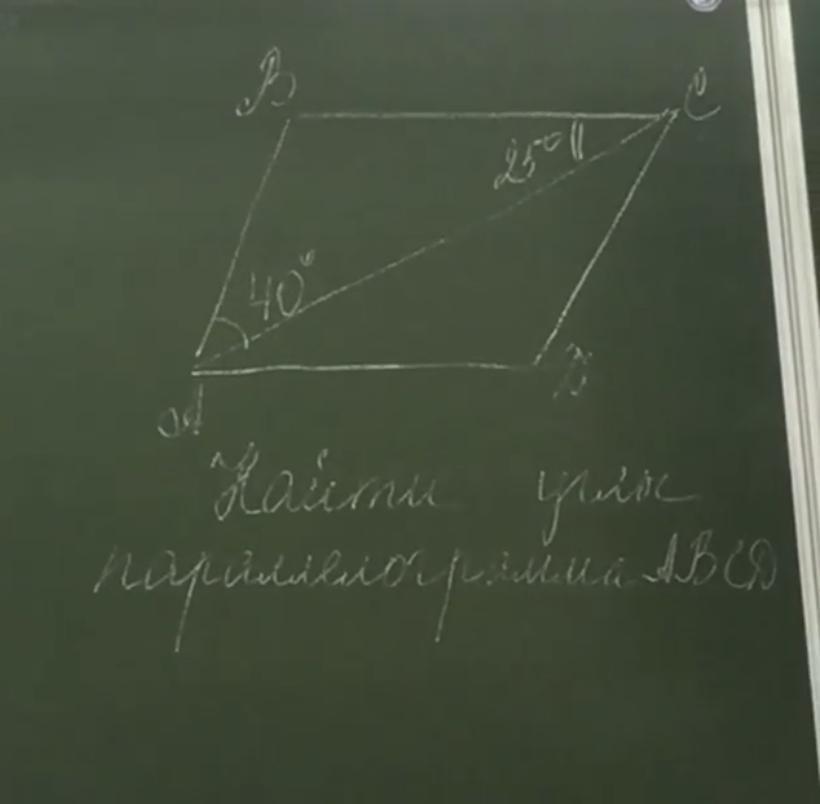 B C
25°
40°
A D
Найти углы
параллелограмма ABCD